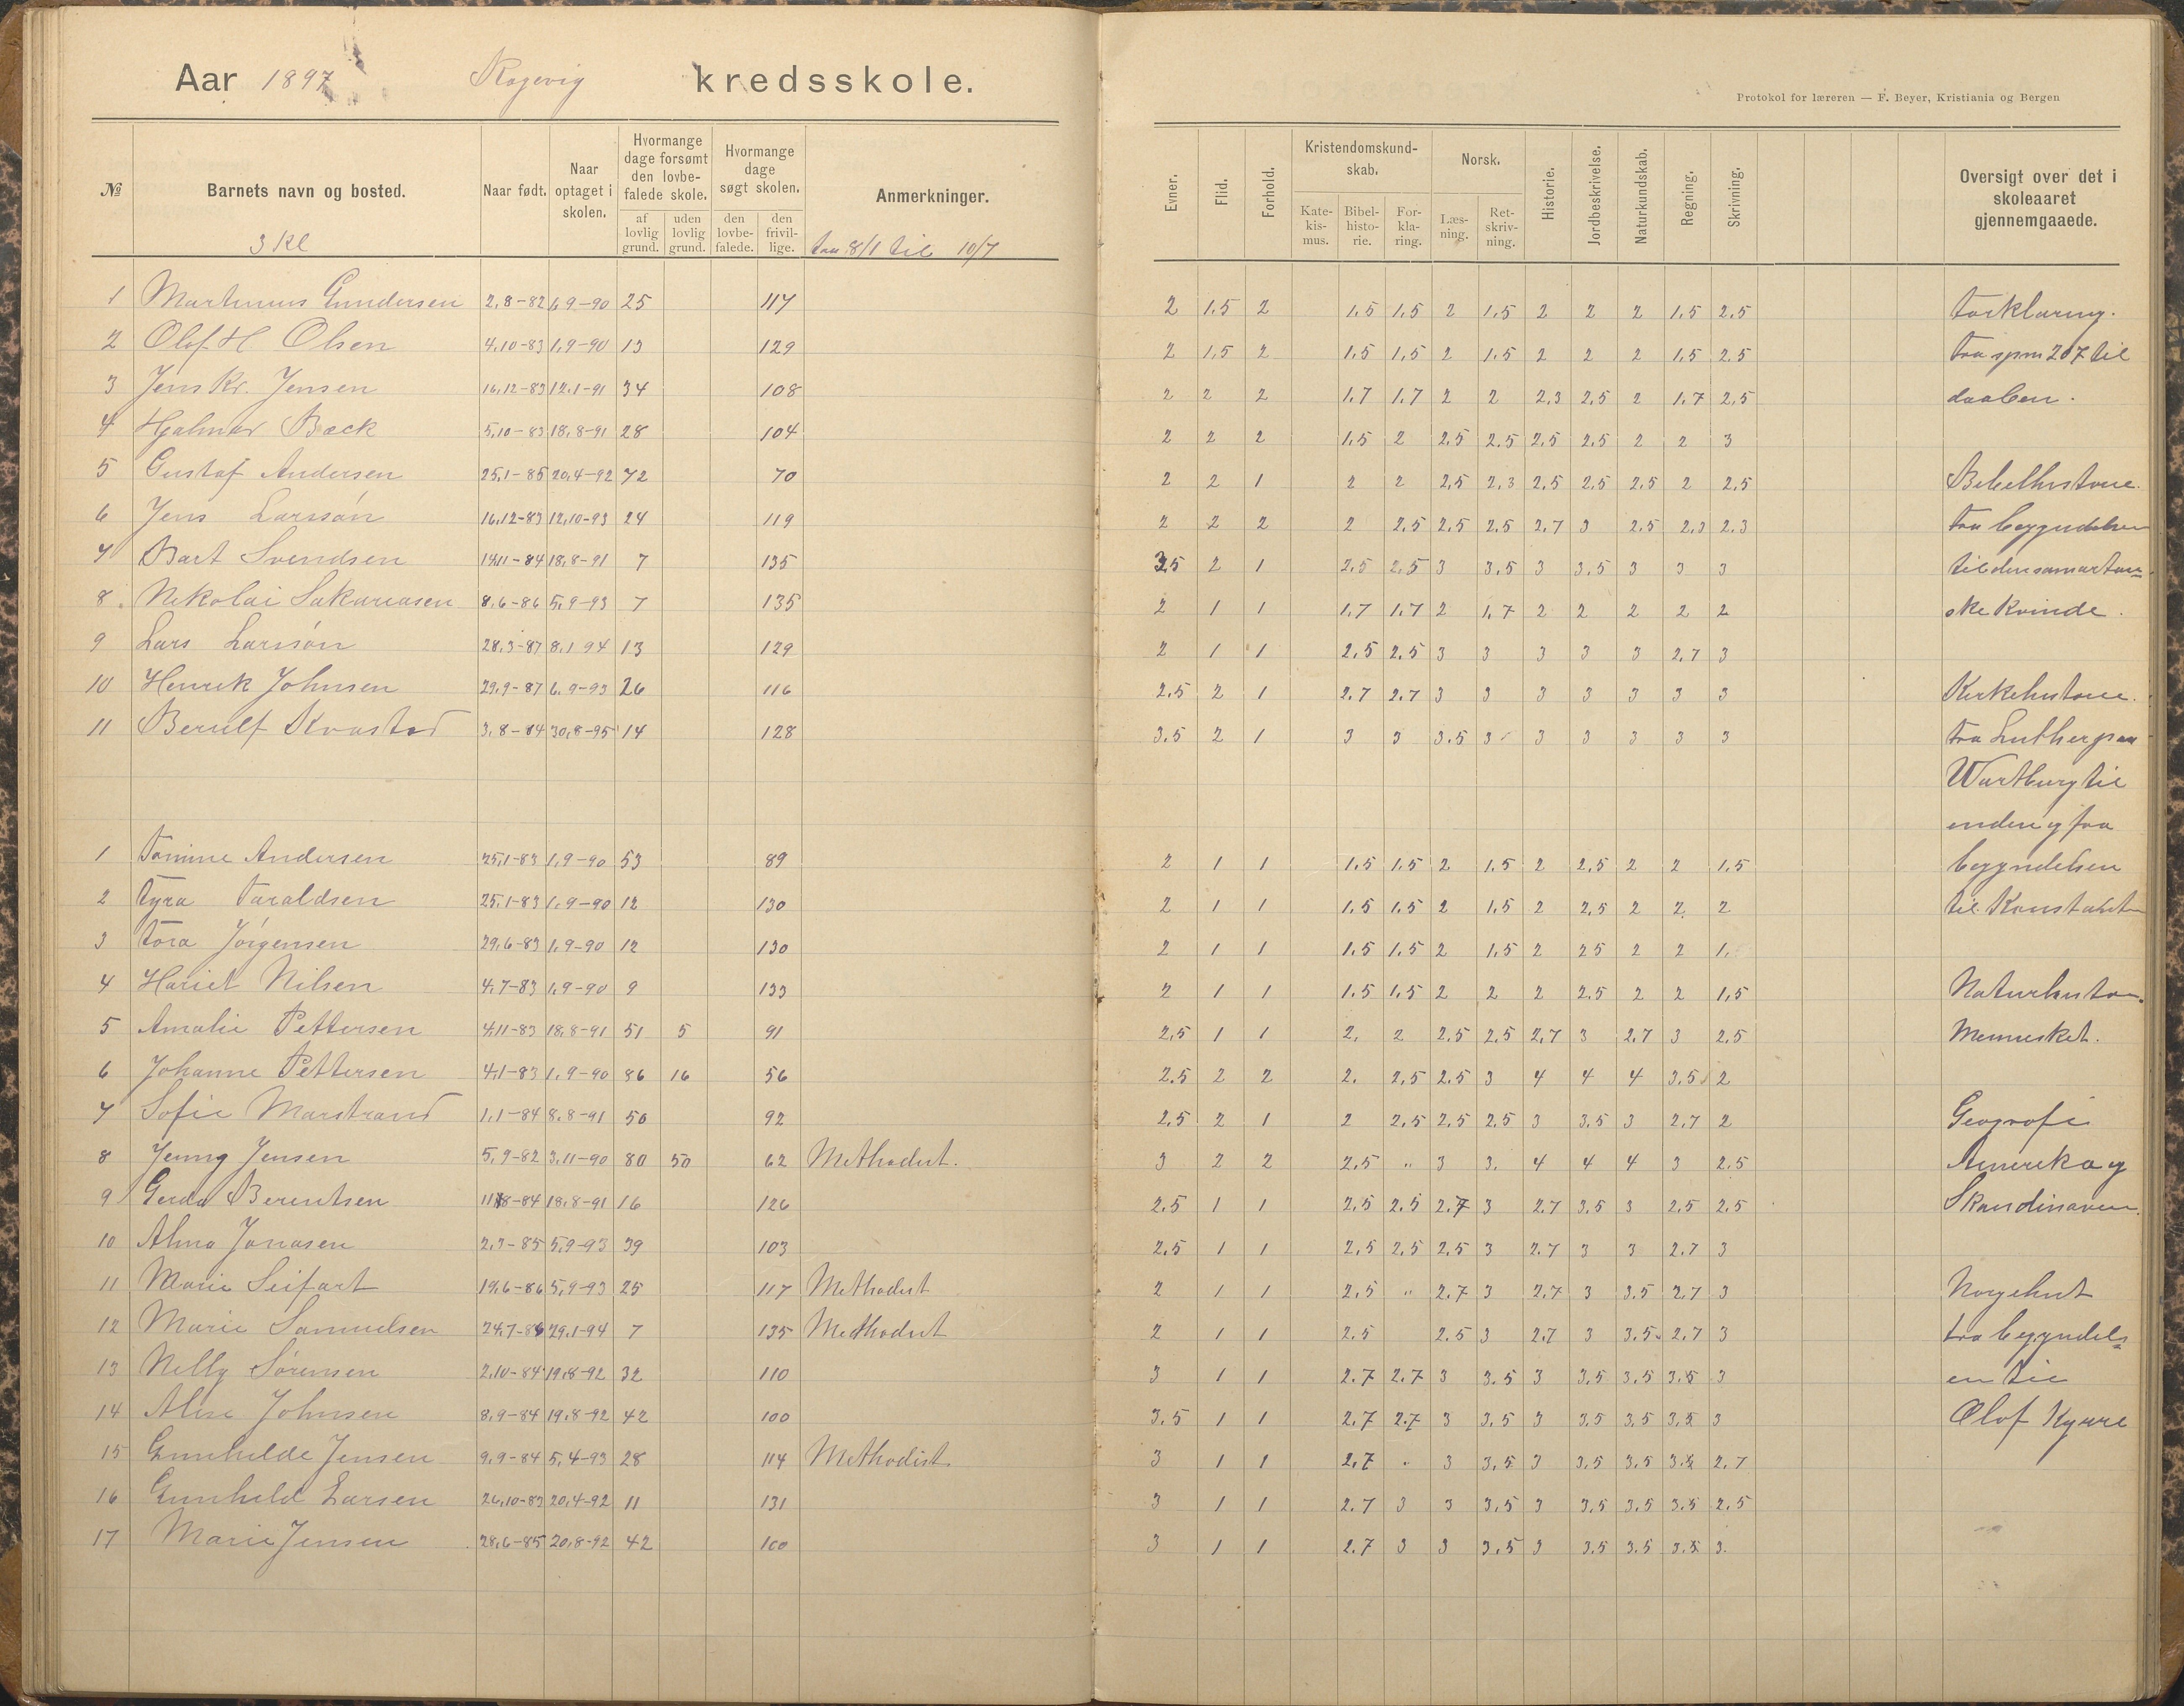 Aar 1897 Kogevig kredsskole.
Protokol for læreren — F. Beyer, Kristiania og Bergen
№ Barnets navn og bosted. Naar født. Naar optaget i skolen. Hvormange dage forsømt den lovbefalede skole. af lovlig grund. uden lovlig grund. Hvormange dage søgt skolen. den lovbefalede. den frivillige. Anmerkninger.
Evner. Flid. Forhold. Kristendomskundskab. Katekismus. Bibelhistorie. Forklaring. Norsk. Læsning. Retskrivning. Historie. Jordbeskrivelse. Naturkundskab. Regning. Skrivning. Oversigt over det i skoleaaret gjennemgaaede.
3 Kl fra 8/1 til 10/7
1 Martinius Gundersen 2,8-82 6,9-90 25 117 2 1,5 2 1,5 1,5 2 1,5 2 2 2 1,5 2,5 Forklaring.
2 Olaf H Olsen 4,10-83 1,9-90 13 129 2 1,5 2 1,5 1,5 2 1,5 2 2 2 1,5 2,5 fra spm 207 til
3 Jens Kr. Jensen 16,12-83 12,1-91 34 108 2 2 2 1,7 1,7 2 2 2,3 2,5 2 1,7 2,5 daaben.
4 Hjalmar Back 5,10-83 18,8-91 28 104 2 2 2 1,5 2 2,5 2,5 2,5 2,5 2 2 3
5 Gustaf Andersen 25,1-85 20,4-92 72 70 2 2 1 2 2 2,5 2,3 2,5 2,5 2,5 2 2,5 Bibelhistorie.
6 Jens Larssøn 16,12-83 12,10-93 24 119 2 2 2 2 2,5 2,5 2,5 2,7 3 2,5 2,3 2,3 fra begyndelsen
7 Bart Svendsen 14,11-84 18,8-91 7 135 3,5 2 1 2,5 2,5 3 3,5 3 3,5 3 3 3 til den samaritan-
8 Nikolai Sakariasen 8,6-86 5,9-93 7 135 2 1 1 1,7 1,7 2 1,7 2 2 2 2 2 ske kvinde.
9 Lars Larssøn 28,3-87 8,1 94 13 129 2 1 1 2,5 2,5 3 3 3 3 3 2,7 3
10 Henrik Johnsen 29,9-87 6,9-93 26 116 2,5 2 1 2,7 2,7 3 3 3 3 3 3 3 Kirkehistorie.
11 Berulf Kvastad 3,8-84 30,8-95 14 128 3,5 2 1 3 3 3,5 3 3 3 3 3 3 fra Luther paa
Wartburg til
enden og fra
1 Tomine Andersen 25,1-83 1,9-90 53 89 2 1 1 1,5 1,5 2 1,5 2 2,5 2 2 1,5 begyndelsen
2 Tyra Taraldsen 25,1-83 1,9-90 12 130 2 1 1 1,5 1,5 2 1,5 2 2,5 2 2 2 til Konstantin
3 Tora Jørgensen 29,6-83 1,9-90 12 130 2 1 1 1,5 1,5 2 1,5 2 25 2 2 1,
4 Hariet Nilsen 4,7-83 1,9-90 9 133 2 1 1 1,5 1,5 2 2 2 2,5 2 2 1,5 Naturhistorie.
5 Amalie Pettersen 4,11-83 18,8-91 51 5 91 2,5 1 1 2, 2 2,5 2,5 2,7 3 2,7 3 2,5 Mennesket.
6 Johanne Pettersen 4,1-83 1,9-90 86 16 56 2,5 2 2 2, 2,5 2,5 3 4 4 4 3,5 2
7 Sofie Marstrand 1,1-84 8,8-91 50 92 2,5 2 1 2 2,5 2,5 2,5 3 3,5 3 2,7 2 Geografi
8 Jenny Jensen 5,9-82 3,11-90 80 50 62 Methodist. 3 2 2 2,5 " 3 3. 4 4 4 3 2,5 Amerika og
9 Gerda Berentsen 11,8-84 18,8-91 16 126 2,5 1 1 2,5 2,5 2,7 3 2,7 3,5 3 2,5 2,5 Skandinavien.
10 Alma Jonasen 2,3-85 5,9-93 39 103 2,5 1 1 2,5 2,5 2,5 3 2,7 3 3 2,7 3
11 Marie Seifart 19,6-86 5,9-93 25 117 Methodist 2 1 1 2,5 " 2,7 3 2,7 3 3,5 2,7 3 Norgehist
12 Marie Samuelsen 24,7-86 29,1-94 7 135 Methodist 2 1 1 2,5 2,5 3 2,7 3 3,5 2,7 3 fra begyndels-
13 Nelly Sørensen 2,10-84 19,8-92 32 110 3 1 1 2,7 2,7 3 3,5 3 3,5 3,5 3,5 3 en til
14 Alise Johnsen 8,9-84 19,8-92 42 100 3,5 1 1 2,7 2,7 3 3,5 3 3,5 3,5 3,5 3 Olof Kyrre
15 Gunhilde Jensen 9,9-84 5,4-93 28 114 Methodist. 3 1 1 2,7 " 3 3,5 3 3,5 3,5 3,5 2,7
16 Gunhild Larsen 26,10-83 20,4-92 11 131 3 1 1 2,7 3 3 3,5 3 3,5 3,5 3,5 2,5
17 Marie Jensen 28,6-85 20,8-92 42 100 3 1 1 2,7 3 3 3,5 3 3,5 3,5 3,5 3.